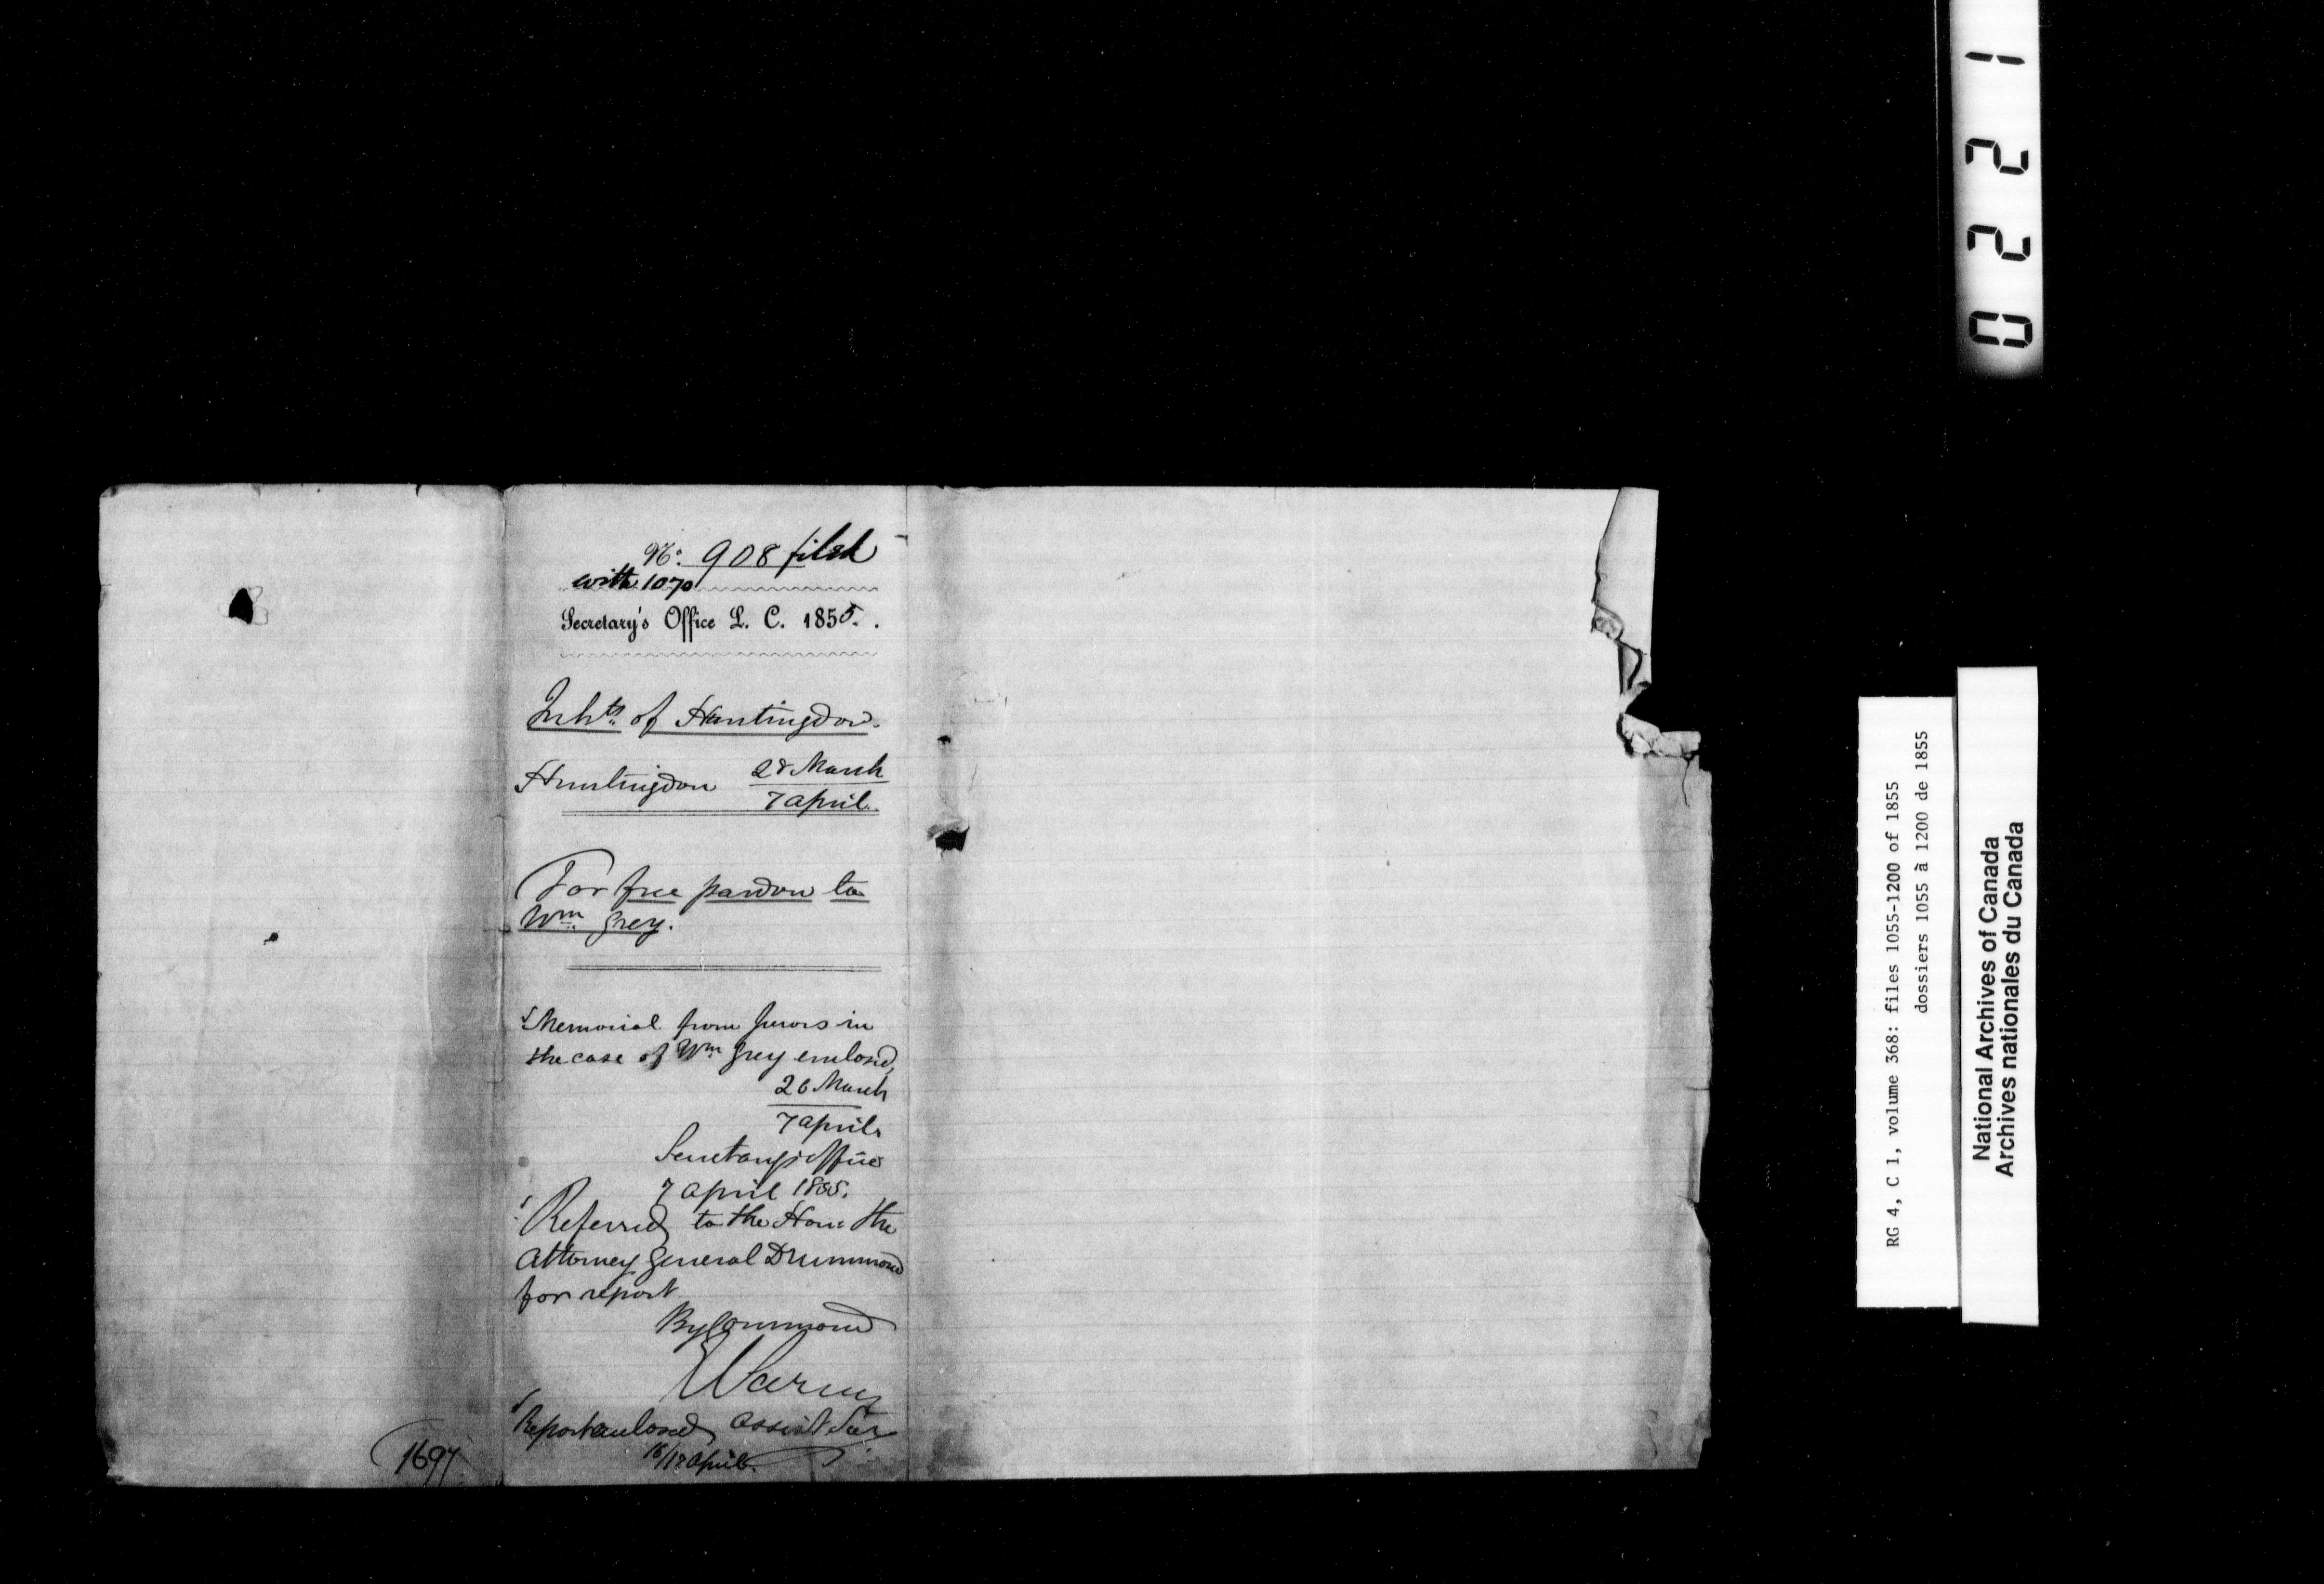 No. 908 filed
with 1070
Secretary's Office L. C. 1855.
Inhts. of Huntingdon.
Huntingdon 28 March
7 April.
For free pardon to
Wm. Grey.
Memorial from jurors in
the case of Wm Grey enclosed,
26 March
7 April.
Secretary's Office
7 April 1855.
Referred to the Hon: the
Attorney General Drummond
for report
By Command
Assist Secy
Report enclosed
16/17 April.
1697
0221
RG 4, C 1, volume 368: files 1055-1200 of 1855
dossiers 1055 à 1200 de 1855
National Archives of Canada
Archives nationales du Canada